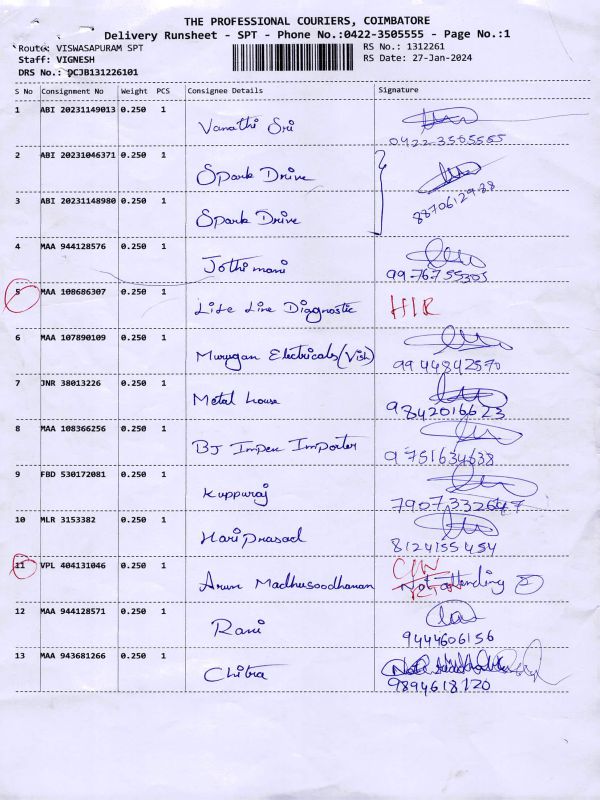 THE PROFESSIONAL COURIERS, COIMBATORE
Delivery Runsheet - SPT - Phone No.:0422-3505555 - Page No.:1
Route: VISWASAPURAM SPT RS No.: 1312261
Staff: VIGNESH RS Date: 27-Jan-2024
DRS No.: DCJB131226101
S No Consignment No Weight PCS Consignee Details Signature
1 ABI 20231149013 0.250 1 Vanathi Sri
0422 3505555
2 ABI 20231046371 0.250 1 Spark Drive
8870612988
3 ABI 20231148980 0.250 1 Spark Drive
4 MAA 944128576 0.250 1 Jothimani
9976755305
5 MAA 108686307 0.250 1 Life Line Diagnostic HIR
6 MAA 107890109 0.250 1 Murugan Electricals (Vish)
9944842570
7 JNR 38013226 0.250 1 Metal House
9842016623
8 MAA 108366256 0.250 1 BJ Impex Importer
9751634638
9 FBD 530172081 0.250 1 Kuppuraj
7907332647
10 MLR 3153382 0.250 1 Hari Prasad
8124155454
11 VPL 404131046 0.250 1 Arun Madhusoodhanan Not attending
12 MAA 944128571 0.250 1 Rani
9444606156
13 MAA 943681266 0.250 1 Chitra
9894618120